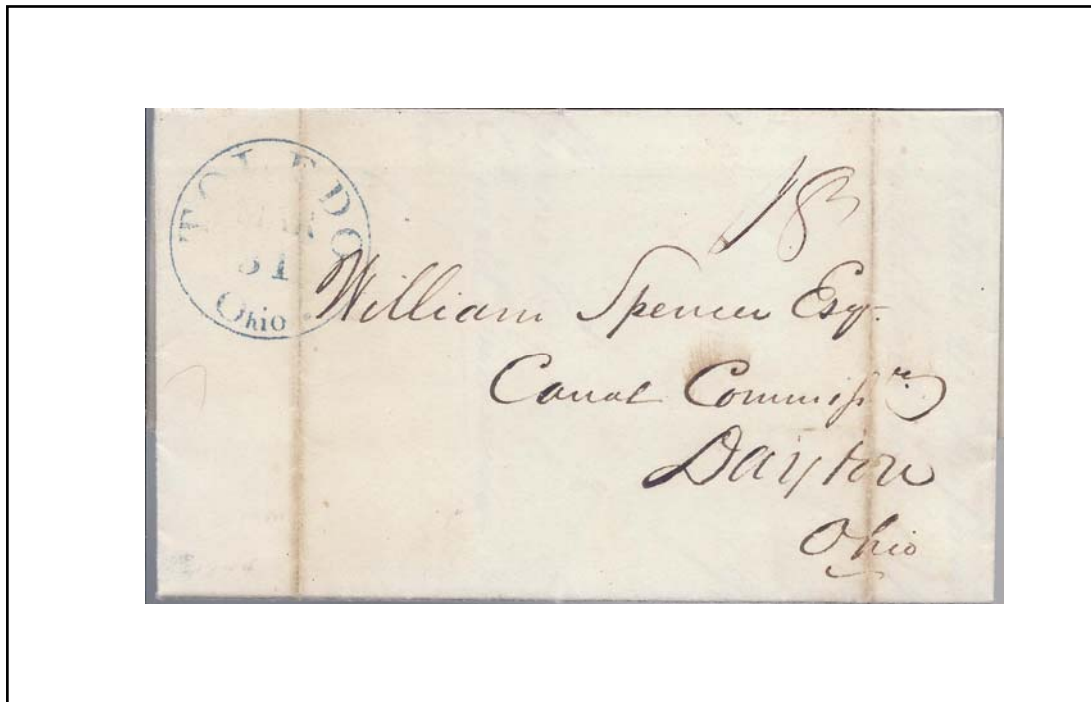 TOLEDO
MAR
31
Ohio
18
William Spencer Esq.
Canal Commissr.
Dayton
Ohio